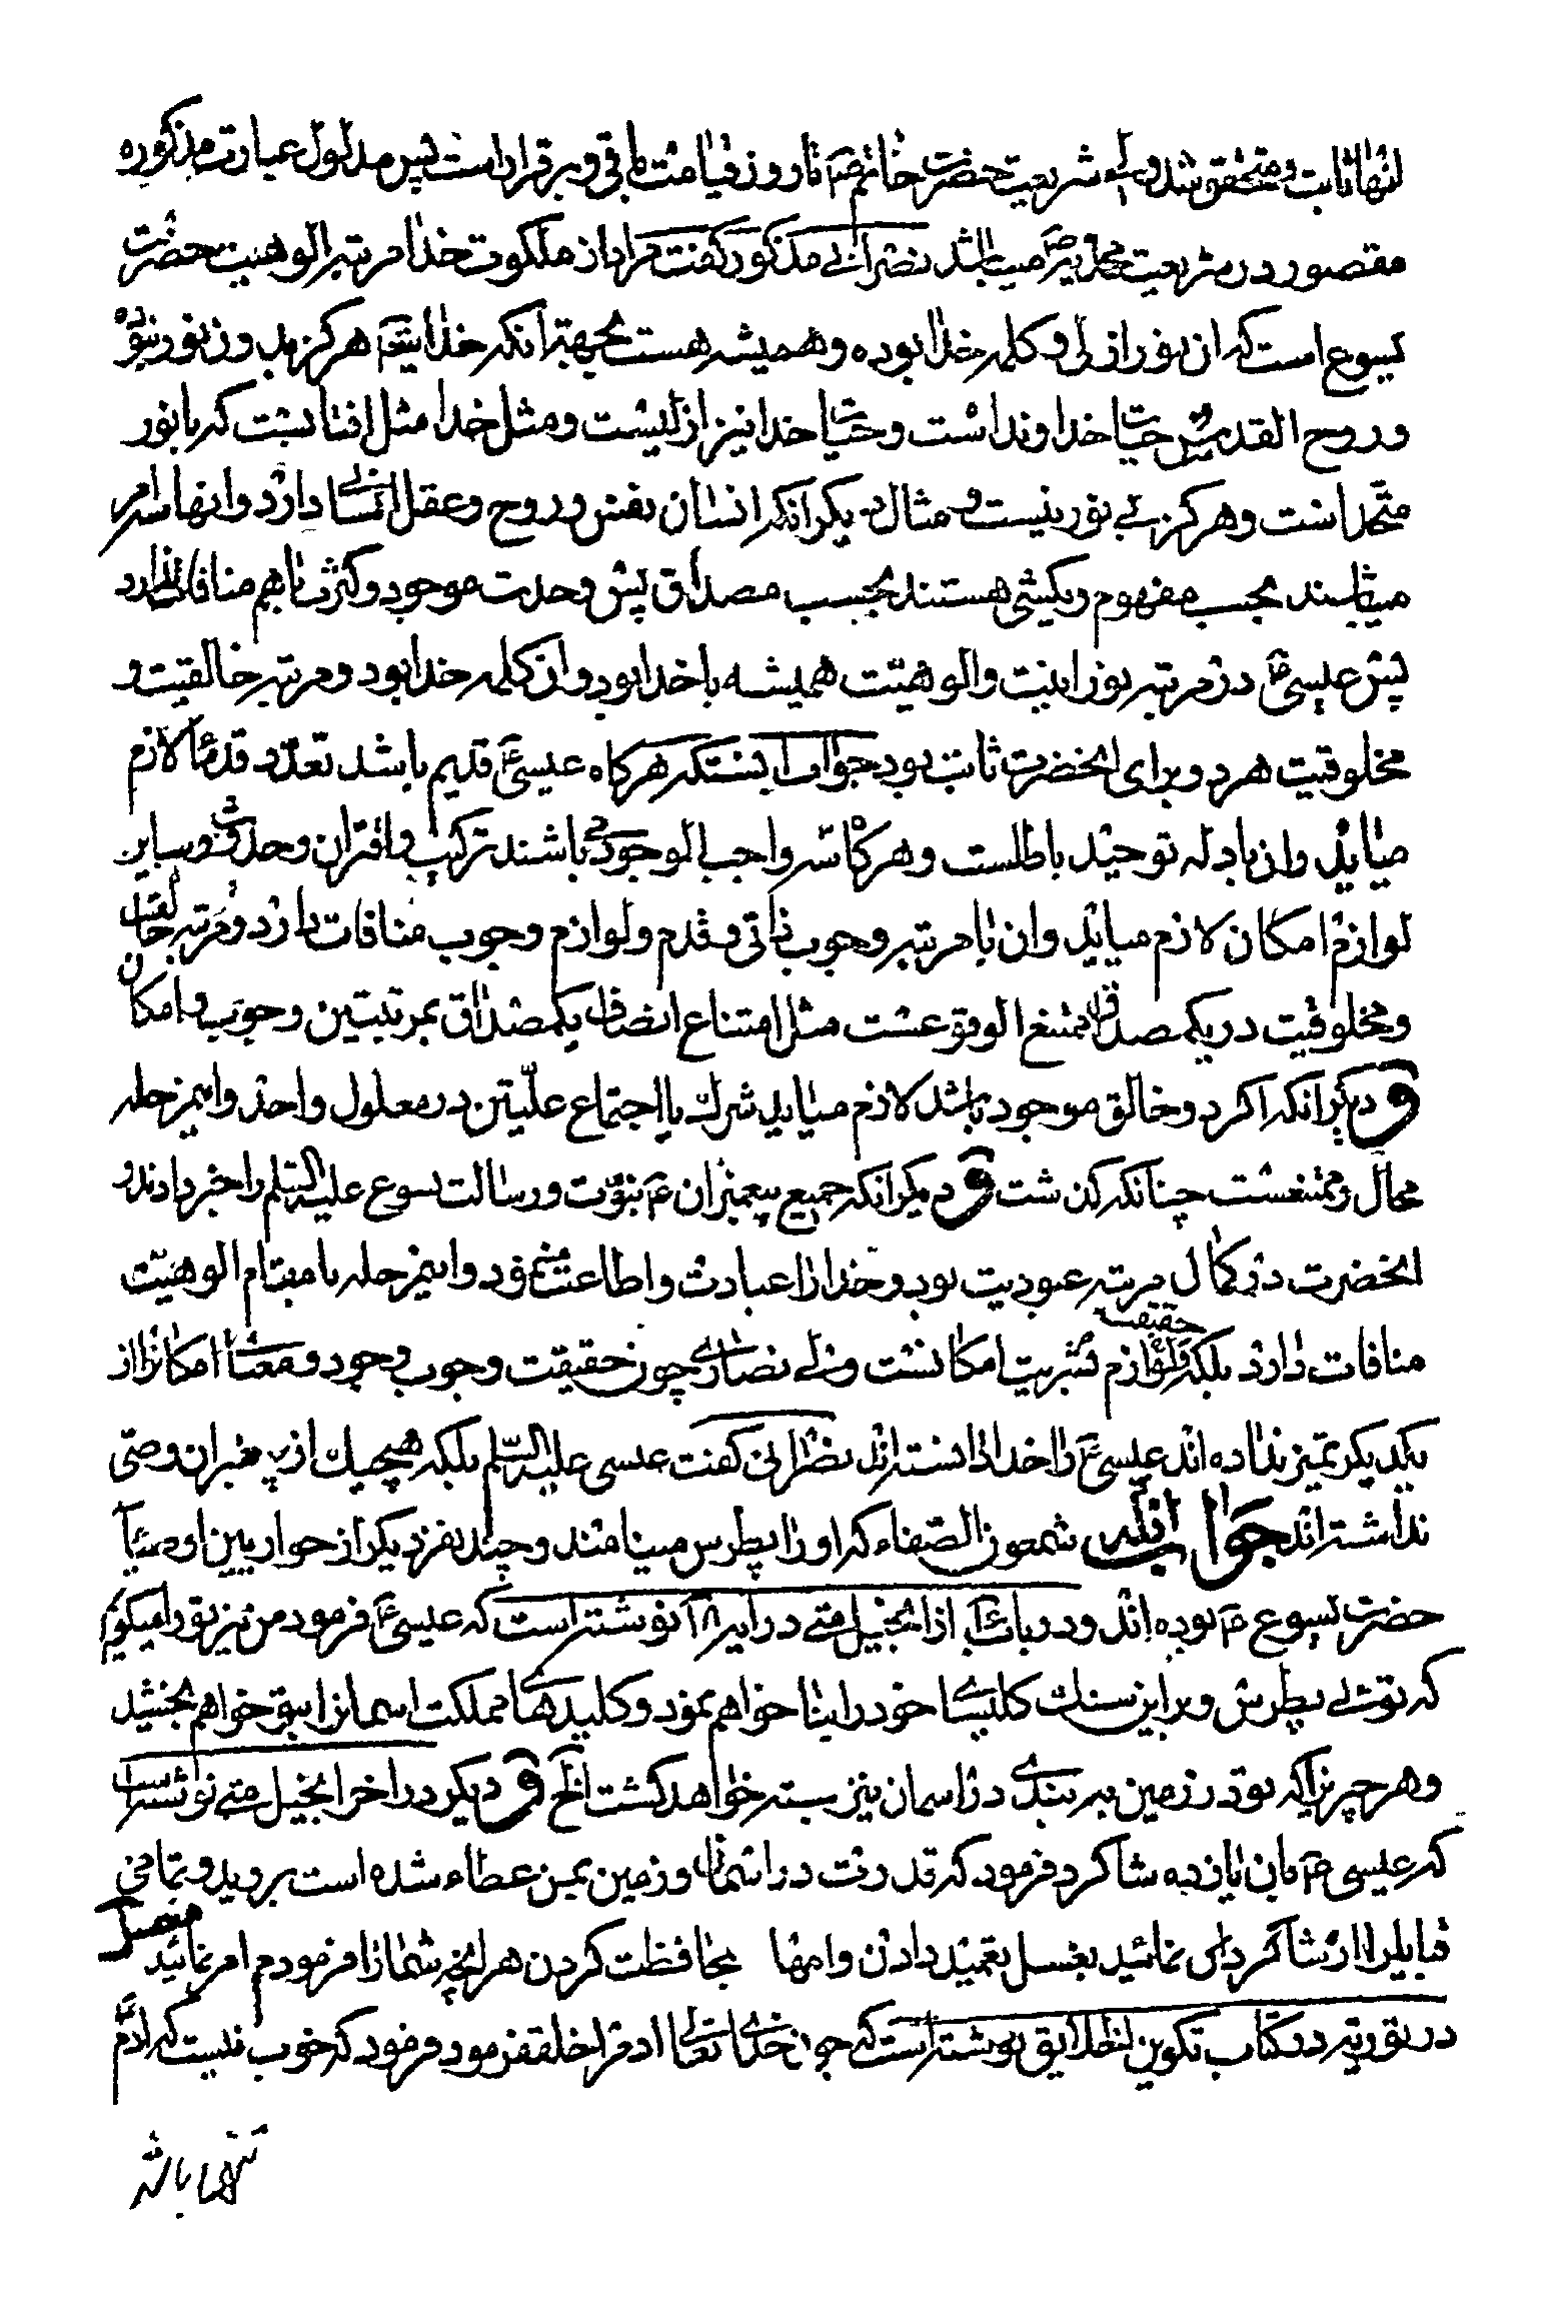 انها ثابت و متحقق شد ولی شریعت حضرت خاتم ص تا روز قیامت باقی و برقرار است پس مدلول عبارت مذکوره
مقصور در شریعت محمدیه ص میباشد نصرانی مذکور گفت مراد از ملکوت خدا مرتبه الوهیت حضرت
یسوع است که ان نور ازلی و کلمه خدا بوده و همیشه هست بجهة انکه خدایتعم هرگز بدون نور نبوده
و روح القدس حیات خداونداست و حیات خدا نیز ازلیست و مثل خدا مثل افتابست که با نور
متحد است و هرگز بی نور نیست و مثال دیگر انکه انسان نفس و روح و عقل انسانی دارد و انها سه امر
میباشند بحسب مفهوم و یکشئ هستند بحسب مصداق پس وحدت موجود و کثرت با هم منافات ندارد
پس عیسی ع در مرتبه نورانیت و الوهیّت همیشه با خدا بود و ان کلمه خدا بود و مرتبه خالقیت و
مخلوقیت هر دو برای انحضرت ثابت بود جواب اینستکه هرگاه عیسی ع قدیم باشد تعدّد قدما لازم
میاید و ان بادله توحید باطلست و هرگاه سه واجب الوجود باشند ترکیب و اقتران و حدوث و سایر
لوازم امکان لازم میاید و ان با مرتبه وجوب ذاتی و قدم و لوازم وجوب منافات دارد و مرتبه خالقیت
و مخلوقیت در یکمصداق ممتنع الوقوعست مثل امتناع اتصاف یکمصداق بمرتبتین وجوب و امکان
و دیگر انکه اگر دو خالق موجود باشد لازم میاید شرک یا اجتماع علّیتن در معلول واحد و اینمرحله
محال و ممتنعست چنانکه گذشت و دیگر انکه جمیع پیغمبران ع بنبوّت و رسالت یسوع علیه السّلم را خبر دادند و
انحضرت در کمال مرتبه عبودیت بود و خدا را عبادت و اطاعت مینمود و اینمرحله با مقام الوهیّت
منافات دارد بلکه حقیقت و لوازم بشریت امکانست ولی نصاری چون حقیقت وجوب وجود و معنا امکانرا از
یکدیگر تمیز نداده اند عیسی ع را خدا دانسته اند نصرانی گفت عیسی علیه السّلم بلکه هیچیک از پیغمبران وصی
نداشته اند جواب انکه شمعون الصّفاء که او را پطرس مینامند و چند نفر دیگر از حواریین اوصیاء
حضرت یسوع ع بوده اند و در باب از انجیل متی در ایه ۱۸ نوشته است که عیسی ع فرمود من نیز تو را میگویم
که توئی پطرس و بر این سنک کلیسیا خود را بنا خواهم نمود و کلیدهای مملکت اسمانرا بتو خواهم بخشید
و هر چیزیکه تو در زمین به بندی در اسمان نیز بسته خواهد گشت الخ و دیگر در اخر انجیل متی نوشته است
که عیسی ع بان یازده شاگرد فرمود که قدرت در اسمان و زمین بمن عطاء شده است بروید و بتمامی
قبایل را ارشاگردی نمائید بغسل تعمید دادن و انها بحافظت کردن هر انچه شما را فرمودم امر نمائید
در توریة در کتاب تکوین الخلایق نوشته است که چون خدای تعالی ادم را خلقفرمود فرمود که خوب نیست که ادم
تنها باشد